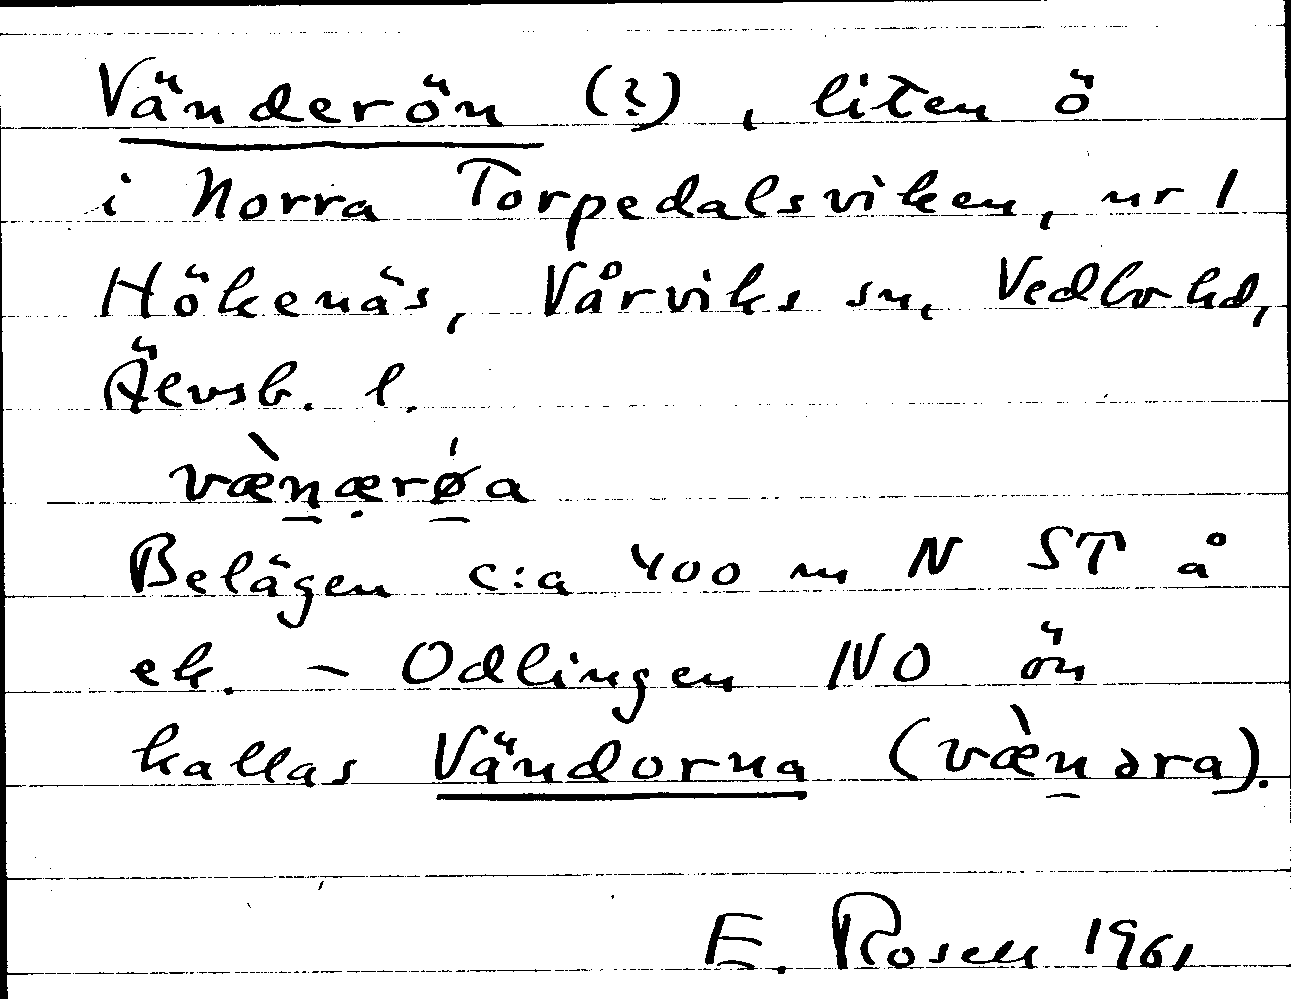 Vänderön (?), liten ö
i Norra Torpedalsviken, nr 1
Hökenäs, Vårviks sn, Vedbo hd,
Älvsb. l.
væ̀ṉæ̣rǿ̱a
Belägen c:a 400 m N ST å
ek. – Odlingen NO ön
kallas Vändorna (væ̀ṉəra).
E. Rosell 1961